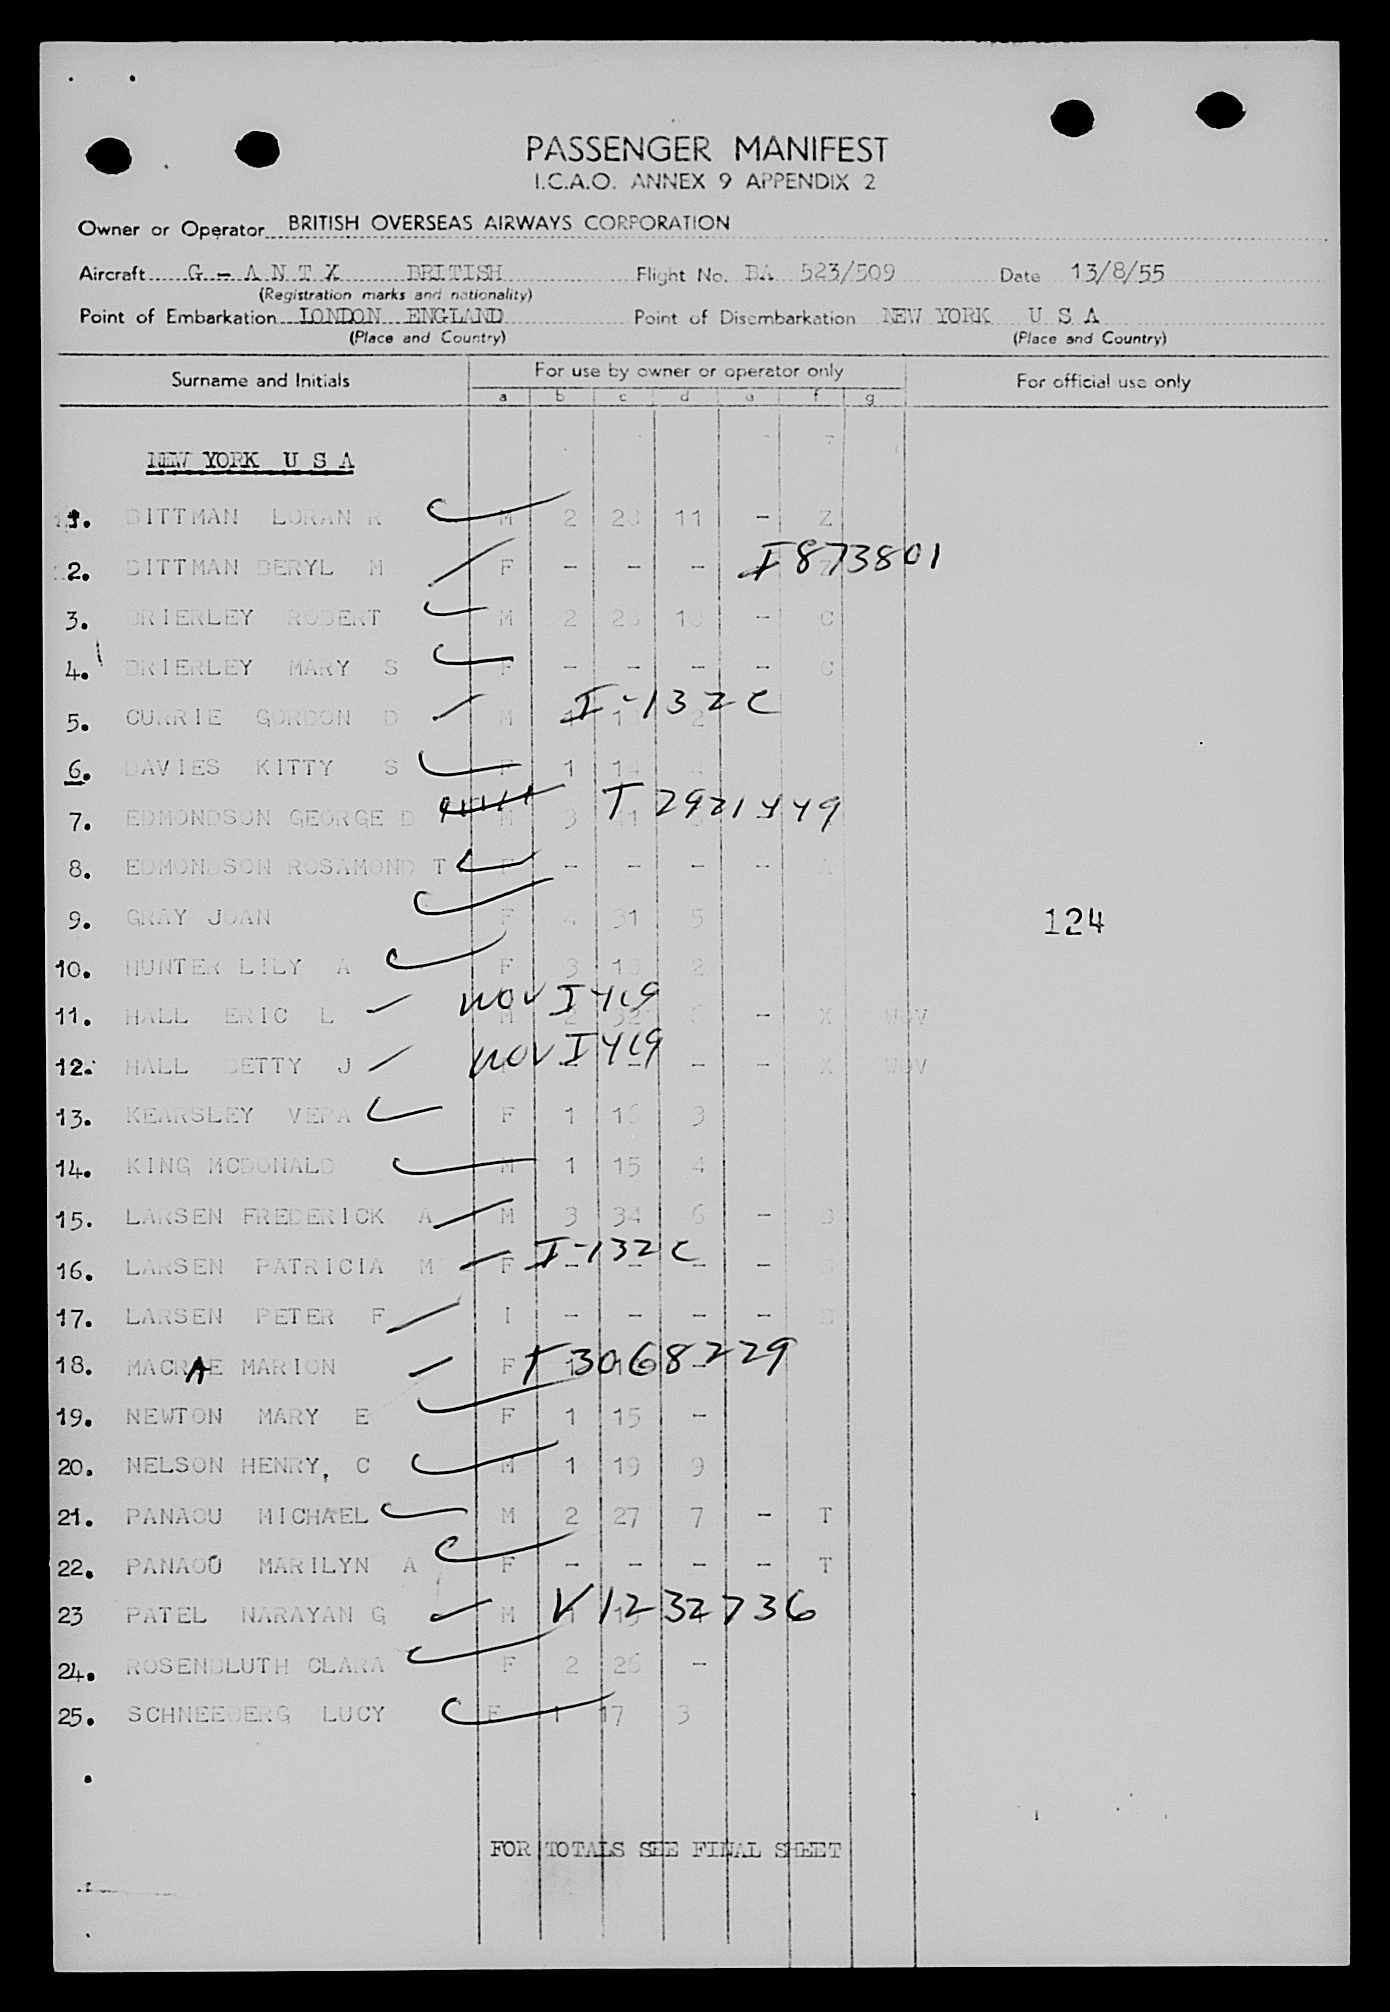 PASSENGER MANIFEST
I.C.A.O. ANNEX 9 APPENDIX 2
Owner or Operator BRITISH OVERSEAS AIRWAYS CORPORATION
Aircraft G - A N T X BRITISH Flight No. BA 523/509 Date 13/8/55
(Registration marks and nationality)
Point of Embarkation LONDON ENGLAND Point of Disembarkation NEW YORK U S A
(Place and Country) (Place and Country)
Surname and Initials For use by owner or operator only For official use only
a b c d e f g
NEW YORK U S A
1. BITTMAN LORAN R M 2 11 - Z
2. BITTMAN BERYL M F - - - I 873801
3. BRIERLEY ROBERT M 2 - C
4. BRIERLEY MARY S F - - - - C
5. CURRIE GORDON D M I-132C 2
6. DAVIES KITTY S F 1 14
7. EDMONDSON GEORGE D M 3 T 2921449
8. EDMONDSON ROSAMOND T F - - - - A
9. GRAY JOAN F 4 31 5
124
10. HUNTER LILY A F 3 2
11. HALL ERIC L WOV I419 M 2 32 - X WOV
12. HALL BETTY J WOV I419 - - - - X WOV
13. KEARSLEY VERA F 1 3
14. KING MCDONALD M 1 15 4
15. LARSEN FREDERICK A M 3 34 6 - B
16. LARSEN PATRICIA M F I-132C - - - -
17. LARSEN PETER F I - - - -
18. MACRAE MARION F T3068229
19. NEWTON MARY E F 1 15 -
20. NELSON HENRY, C M 1 19 9
21. PANAOU MICHAEL M 2 27 7 - T
22. PANAOU MARILYN A F - - - - T
23 PATEL NARAYAN G M V1232736
24. ROSENBLUTH CLARA F 2 26 -
25. SCHNEEBERG LUCY F 1 17 3
FOR TOTALS SEE FINAL SHEET